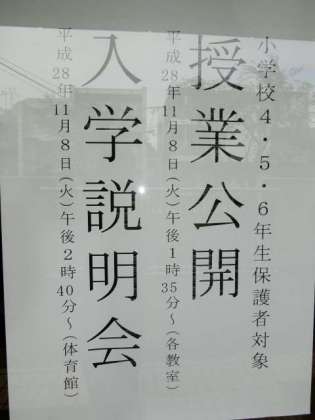 小学校4・5・6年生保護者対象
授業公開
平成28年11月8日(火)午後1時35分～(各教室)
入学説明会
平成28年11月8日(火)午後2時40分～(体育館)